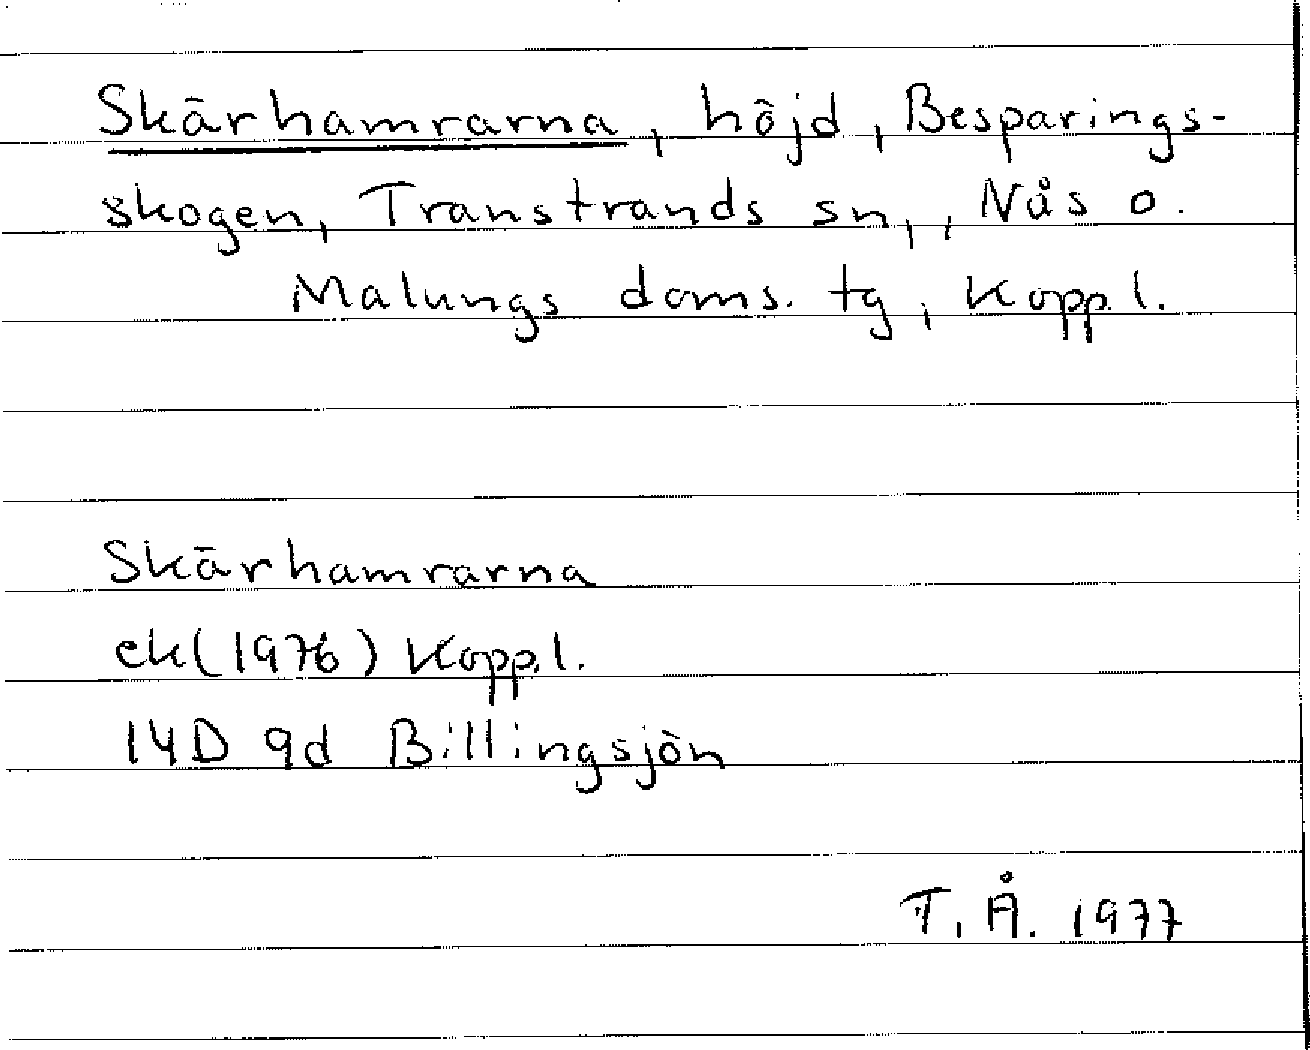 Skärhamrarna, höjd, Besparings-
skogen, Transtrands sn,, Nås o.
Malungs doms. tg, Koppl.
Skärhamrarna
ek(1976) Koppl.
14D 9d Billingsjön
T. Å. 1977